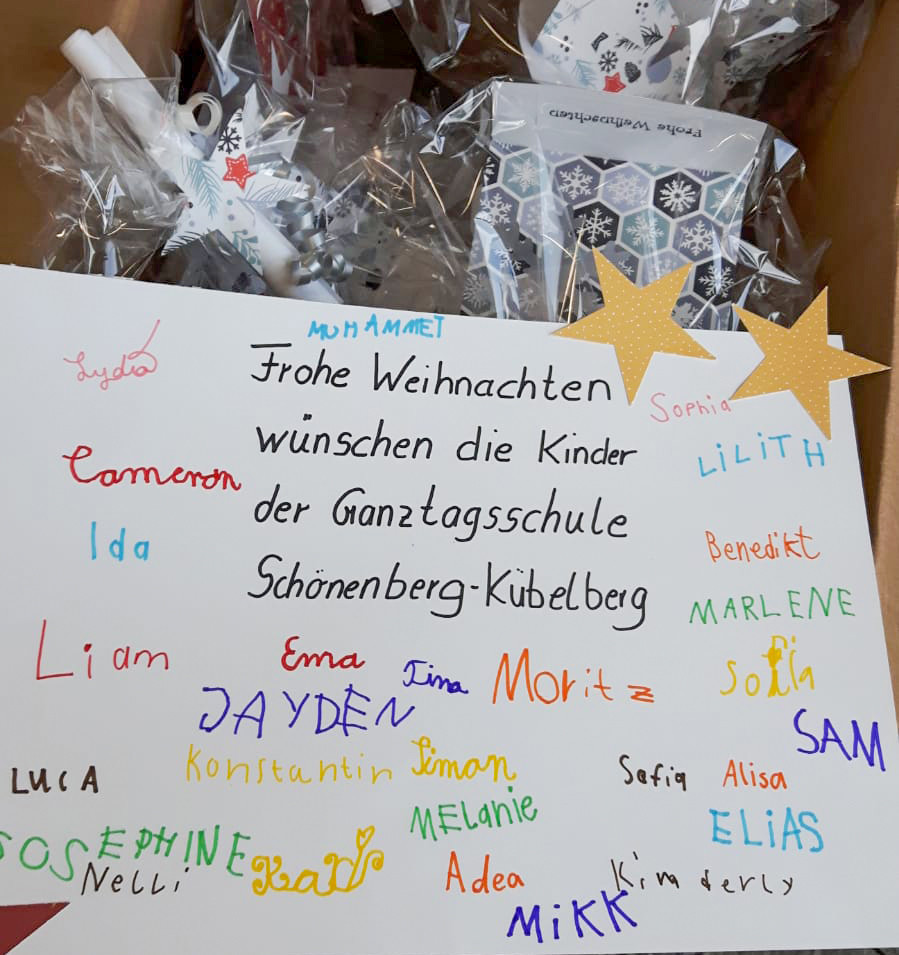 Frohe Weihnachten
MUHAMMET
Lydia
Frohe Weihnachten
Sophia
wünschen die Kinder
LiLiTH
Cameron
der Ganztagsschule
Ida
Benedikt
Schönenberg-Kübelberg
MARLENE
Liam
Ema
Moritz
Sofia
JAYDEN
SAM
Konstantin
Simon
LUCA
Sofia
Alisa
MELanie
ELiAS
JOSEPHINE
Nelli
Adea
Kimberly
MiKK